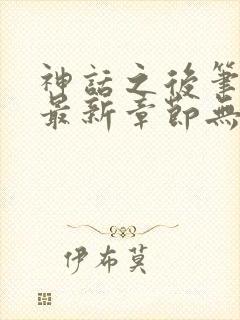 神話之後筆
最新章節無
伊布莫